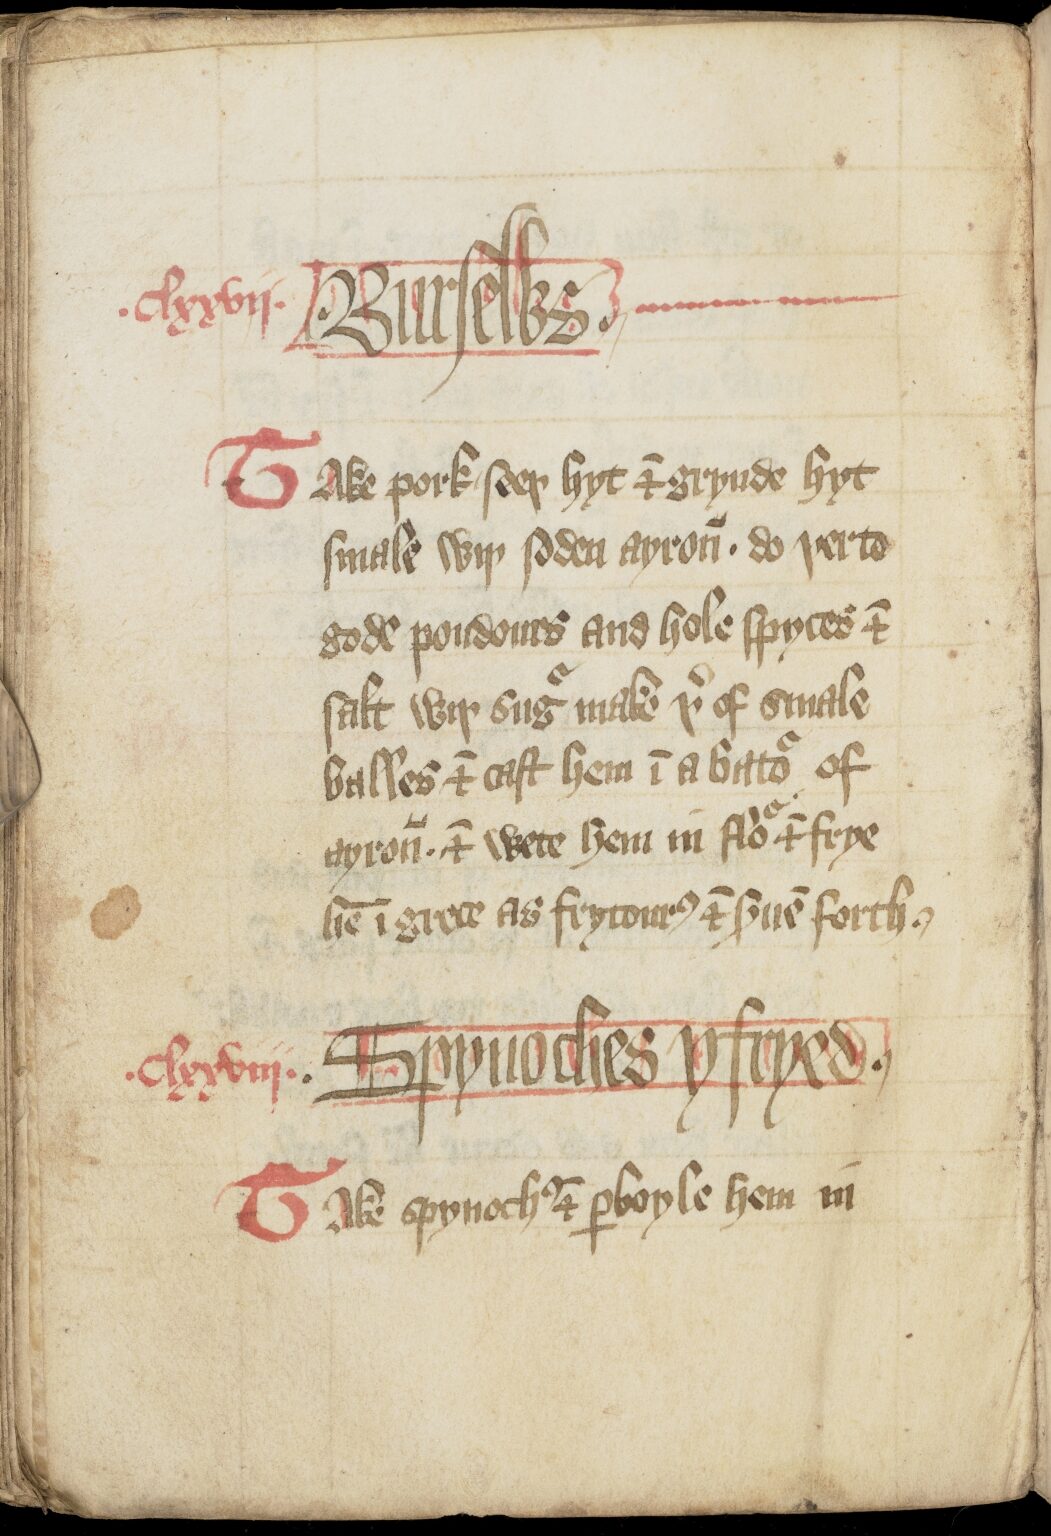 .clxxvij. .Burselks.
Take pork seeþ hyt ⁊ grynde hyt
smale wiþ soden ayron̄. do þerto
gode poudours and hole spyces ⁊
salt wiþ sugᵉ make þʳ of smale
balles ⁊ cast hem ī a batoᵉ of
ayron̄. ⁊ wete hem in floᵉ ⁊ frye
hē ī grece as frytourꝭ ⁊ ẜuē forth.
.clxxviij. .Spynoches yfryed.
Take spynochꝭ ⁊ ꝑboyle hem in